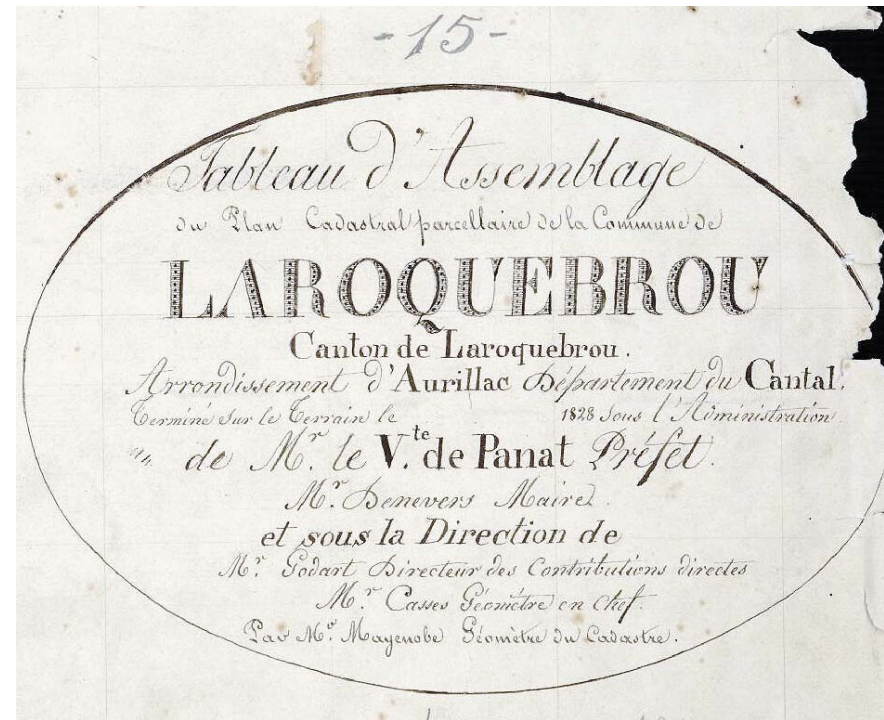 -15-
Tableau d'Assemblage
du Plan Cadastral parcellaire de la Commune de
LAROQUEBROU
Canton de Laroquebrou.
Arrondissement d'Aurillac Département du Cantal.
Terminé sur le Terrain le 1828 sous l'Administration
de M.r le V.te de Panat Préfet.
M.r Denevers Maire.
et sous la Direction de
M.r Godart Directeur des Contributions directes
M.r Casses Géomètre en chef.
Par M.r Mayenobe Géomètre du Cadastre.